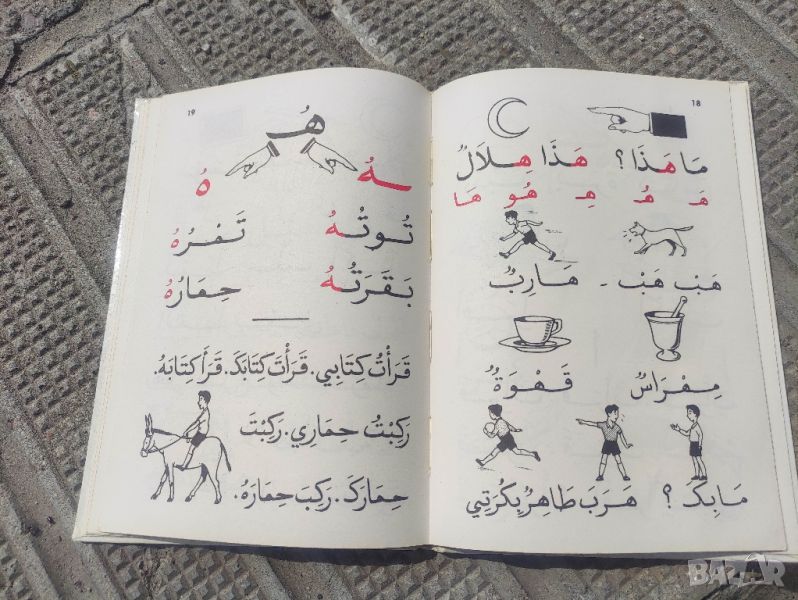 18
مَا هَذَا ؟ هَذَا هِلَالٌ
هَـ هُـ هِـ هُو هَا
هَبْ هَبْ - هَارِبٌ
مِهْرَاسٌ قَهْوَةٌ
مَا بِكَ ؟ هَرَبَ طَاهِرٌ بِكُرَتِي
19
هُـ
ـهُ هُ
تُوتُهُ تَمْرُهُ
بَقَرَتُهُ حِمَارُهُ
قَرَأْتُ كِتَابِي. قَرَأْتَ كِتَابَكَ. قَرَأَ كِتَابَهُ.
رَكِبْتُ حِمَارِي. رَكِبْتَ
حِمَارَكَ. رَكِبَ حِمَارَهُ.
BAZAR